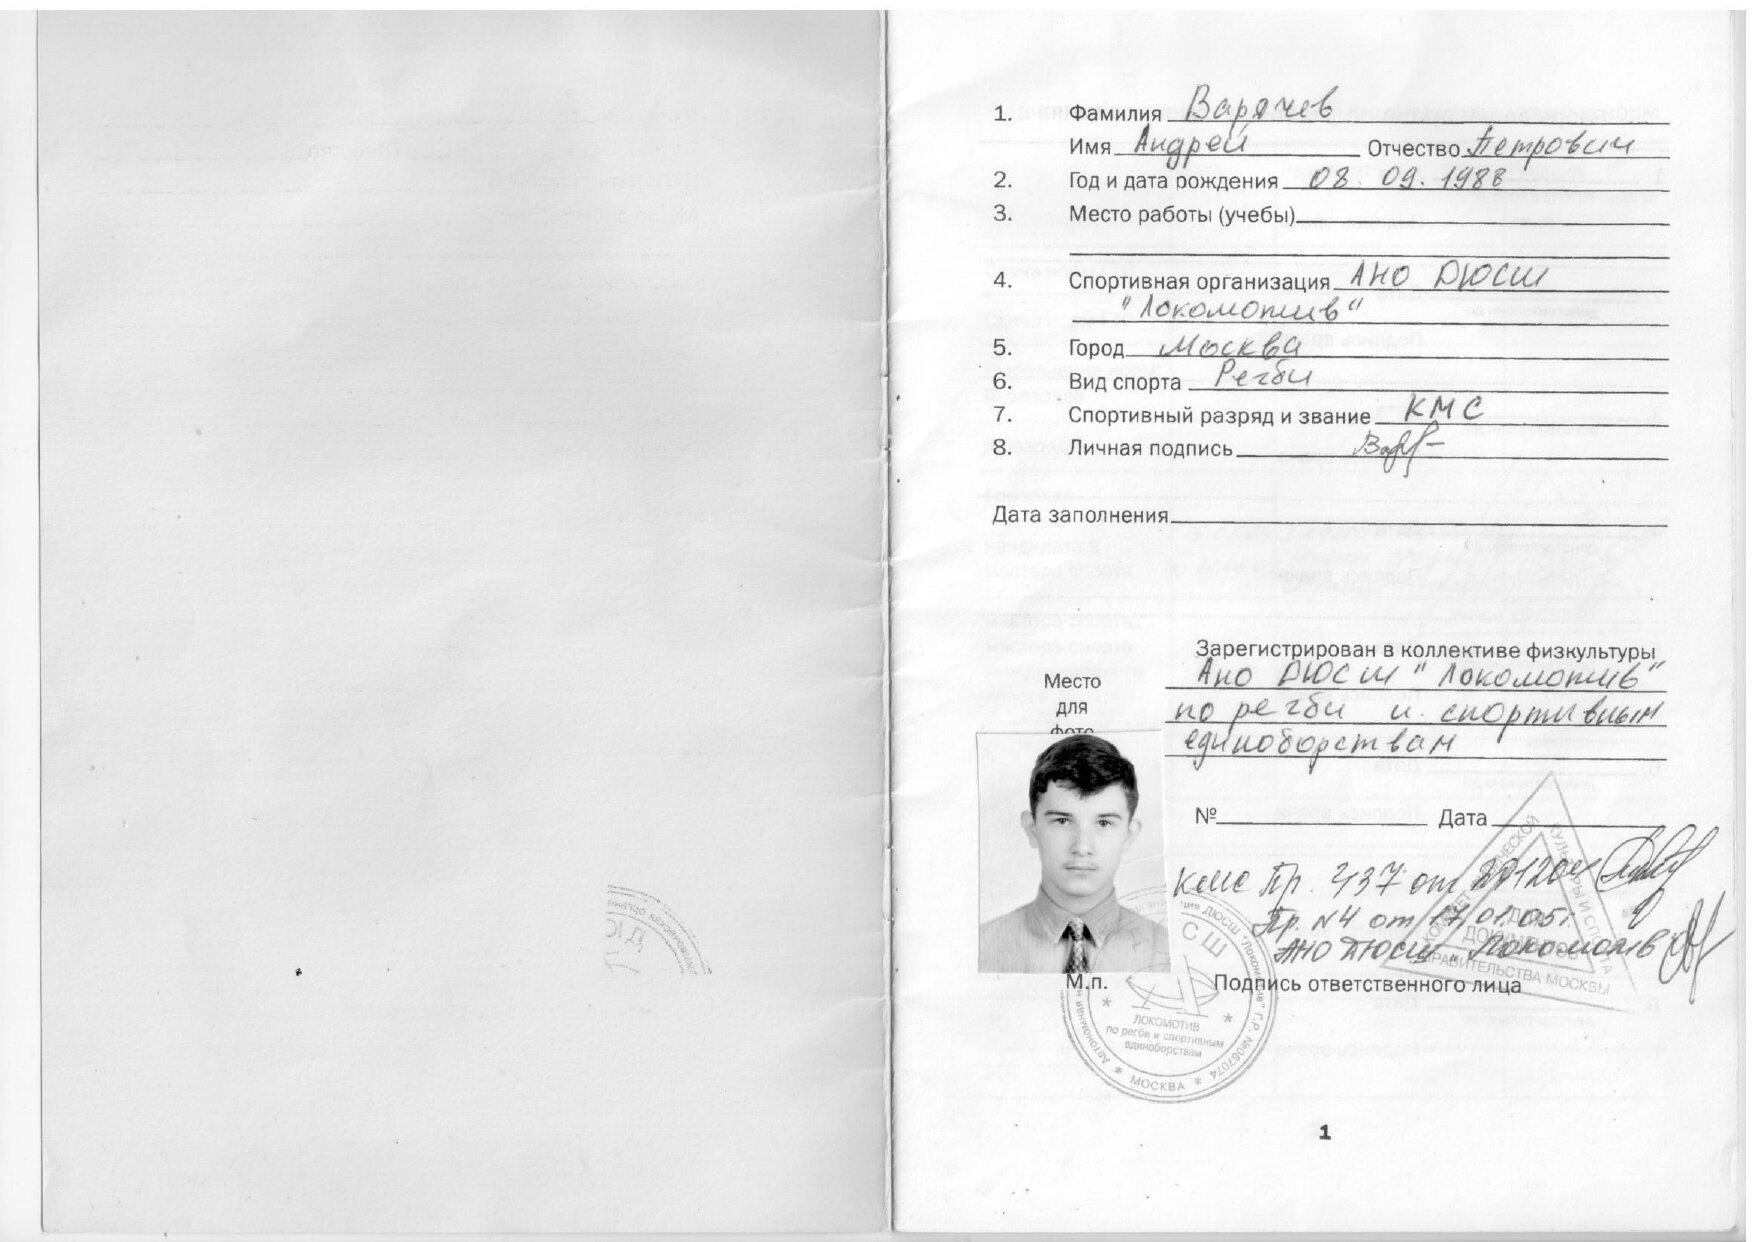 1. Фамилия Варячев
Имя Андрей Отчество Петрович
2. Год и дата рождения 08. 09. 1988
3. Место работы (учебы)
4. Спортивная организация АНО ДЮСШ
"Локомотив"
5. Город Москва
6. Вид спорта Регби
7. Спортивный разряд и звание КМС
8. Личная подпись
Дата заполнения
Зарегистрирован в коллективе физкультуры
Ано ДЮСШ "Локомотив"
по регби и спортивным
единоборствам
Место
для
фото
№ Дата
КМС Пр. 437 от
Пр. N4 от 17.01.05г.
АНО ДЮСШ "Локомотив
М.п. Подпись ответственного лица
КОМИТЕТ ФИЗИЧЕСКОЙ КУЛЬТУРЫ И СПОРТА ПРАВИТЕЛЬСТВА МОСКВЫ
ДЛЯ
ДОКУМЕНТОВ
ДЮСШ "Локомотив" Г.Р. №067074
* МОСКВА *
Автономная
СШ
ЛОКОМОТИВ
по регби и спортивным
единоборствам
1